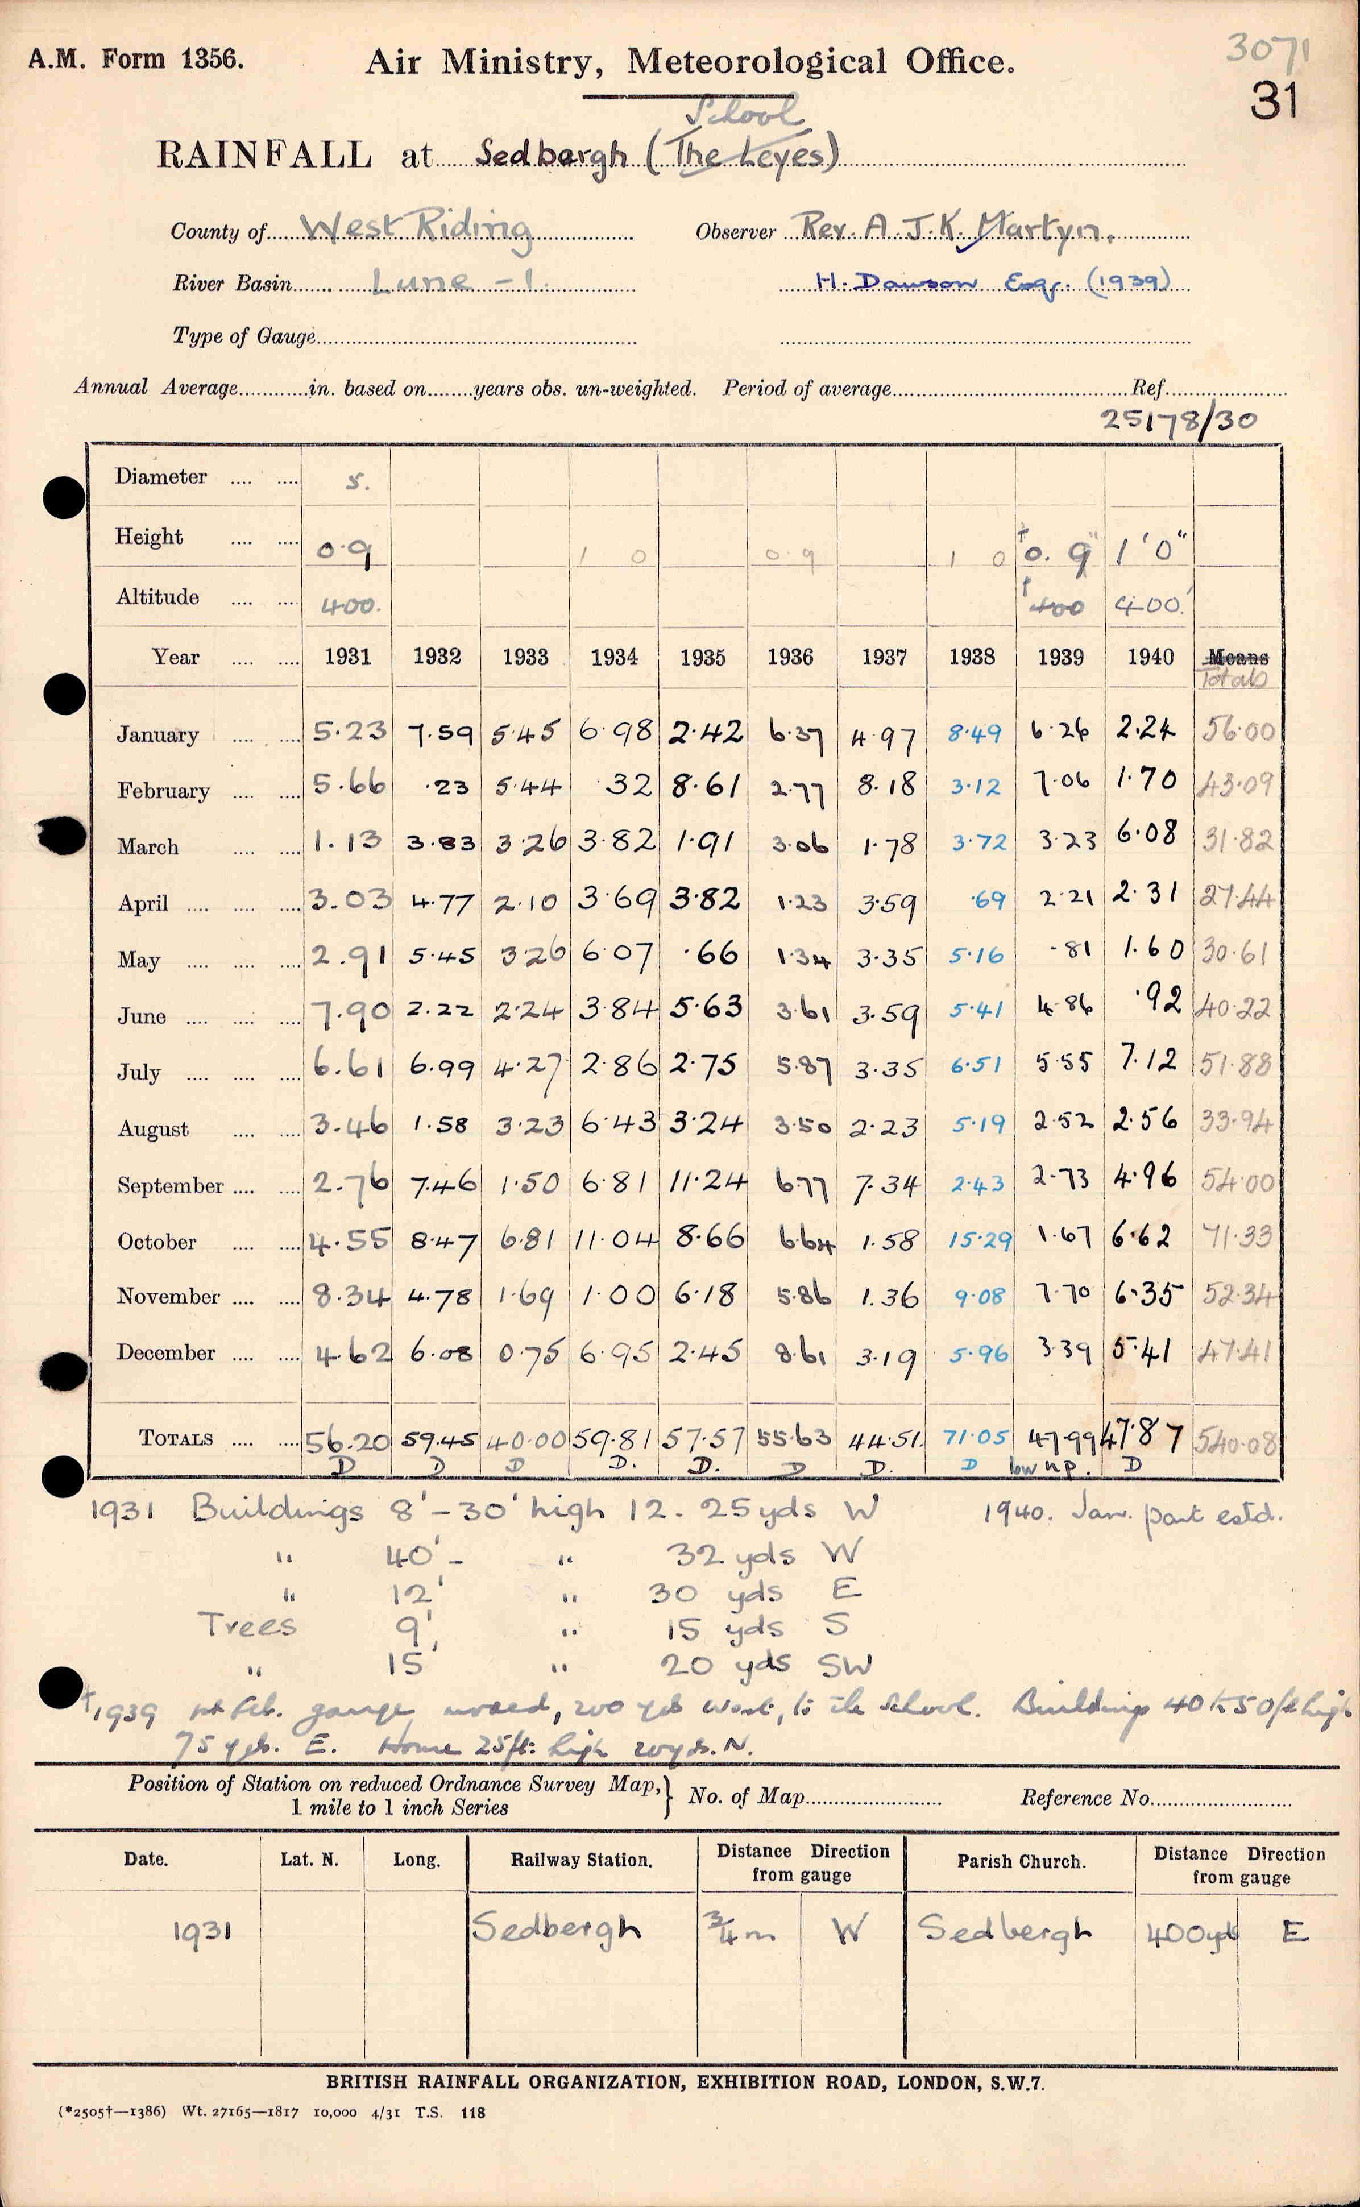 A.M. Form 1356.
Air Ministry, Meteorological Office.
3071
31
School
RAINFALL at Sedbergh (The Leyes)
County of West Riding Observer Rev. A. J. K. Martyn.
River Basin Lune - 1. H. Dawson Esq. (1939)
Type of Gauge
Annual Average in. based on years obs. un-weighted. Period of average Ref.
25178/30
Diameter 5.
Height 0.9 1 0 0.9 1 0 †0. 9" 1'0"
Altitude 400. †400 400'
Year 1931 1932 1933 1934 1935 1936 1937 1938 1939 1940 Means
Totals
January 5.23 7.59 5.45 6.98 2.42 6.37 4.97 8.49 6.26 2.24 56.00
February 5.66 .23 5.44 .32 8.61 2.77 8.18 3.12 7.06 1.70 43.09
March 1.13 3.83 3.26 3.82 1.91 3.06 1.78 3.72 3.23 6.08 31.82
April 3.03 4.77 2.10 3.69 3.82 1.23 3.59 .69 2.21 2.31 27.44
May 2.91 5.45 3.26 6.07 .66 1.34 3.35 5.16 .81 1.60 30.61
June 7.90 2.22 2.24 3.84 5.63 3.61 3.59 5.41 4.86 .92 40.22
July 6.61 6.99 4.27 2.86 2.75 5.87 3.35 6.51 5.55 7.12 51.88
August 3.46 1.58 3.23 6.43 3.24 3.50 2.23 5.19 2.52 2.56 33.94
September 2.76 7.46 1.50 6.81 11.24 6.77 7.34 2.43 2.73 4.96 54.00
October 4.55 8.47 6.81 11.04 8.66 6.64 1.58 15.29 1.67 6.62 71.33
November 8.34 4.78 1.69 1.00 6.18 5.86 1.36 9.08 7.70 6.35 52.34
December 4.62 6.08 0.75 6.95 2.45 8.61 3.19 5.96 3.39 5.41 47.41
TOTALS 56.20 59.45 40.00 59.81 57.57 55.63 44.51 71.05 47.99 47.87 540.08
D D D D. D. D D. D low up. D
1931 Buildings 8'-30' high 12. 25 yds W 1940. Jan. part estd.
" 40'- " 32 yds W
" 12' " 30 yds E
Trees 9' " 15 yds S
" 15' " 20 yds SW
†1939 1st Feb. gauge moved, 200 yds West, to the School. Building 40 to 50 ft high
75 yds. E. Home 25ft: high 20 yds. N.
Position of Station on reduced Ordnance Survey Map,} No. of Map Reference No.
1 mile to 1 inch Series
Date. Lat. N. Long. Railway Station. Distance Direction from gauge Parish Church. Distance Direction from gauge
1931 Sedbergh 3/4 m W Sedbergh 400 yds E
BRITISH RAINFALL ORGANIZATION, EXHIBITION ROAD, LONDON, S.W.7.
(*2505†—1386) Wt. 27165—1817 10,000 4/31 T.S. 118